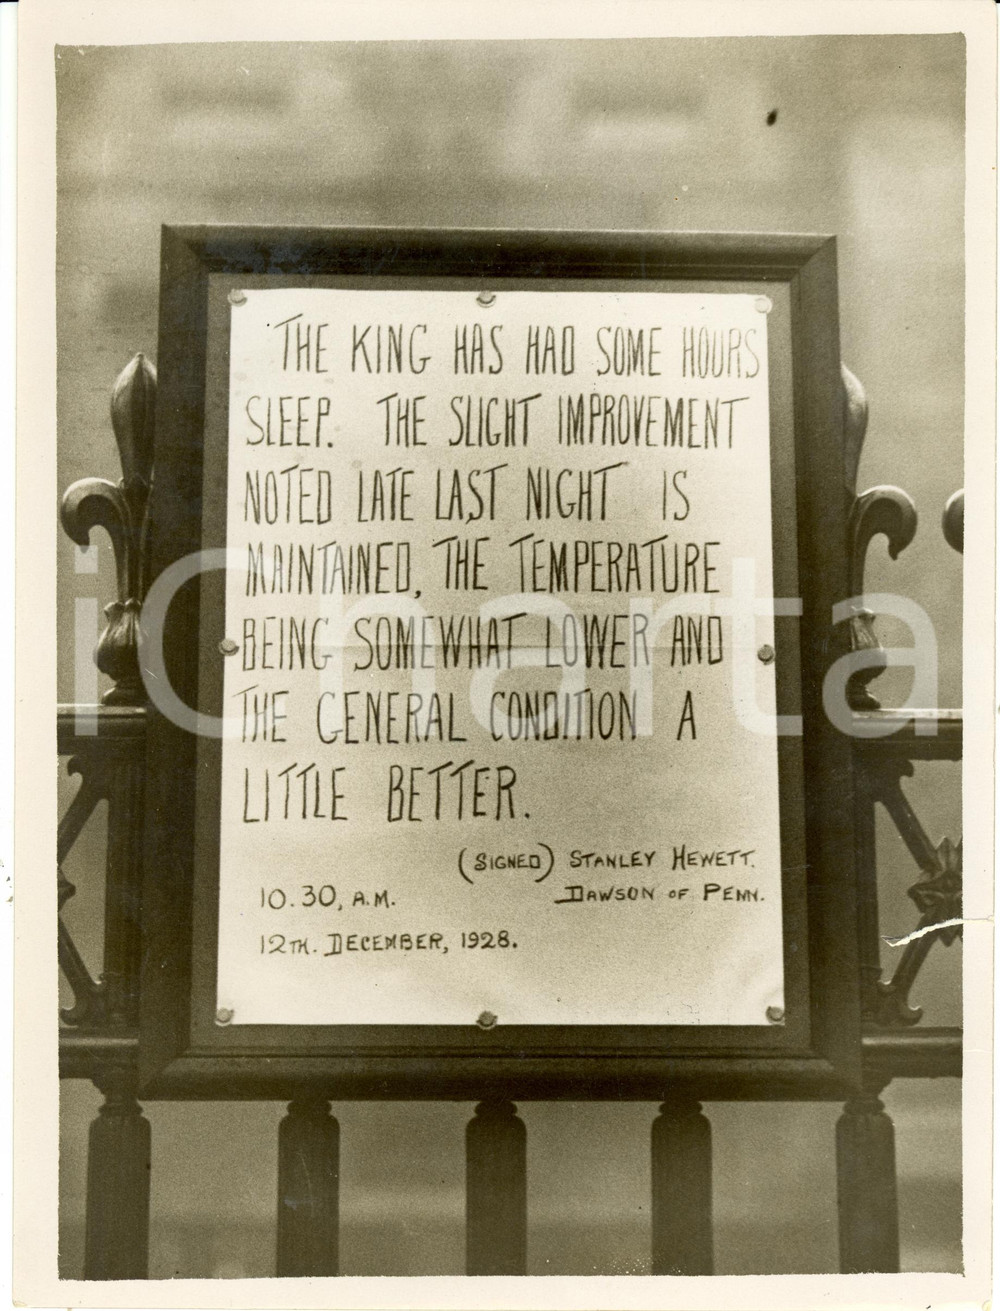 THE KING HAS HAD SOME HOURS
SLEEP. THE SLIGHT IMPROVEMENT
NOTED LATE LAST NIGHT IS
MAINTAINED, THE TEMPERATURE
BEING SOMEWHAT LOWER AND
THE GENERAL CONDITION A
LITTLE BETTER.
(SIGNED) STANLEY HEWETT.
DAWSON OF PENN.
10.30, A.M.
12TH. DECEMBER, 1928.
iCharta